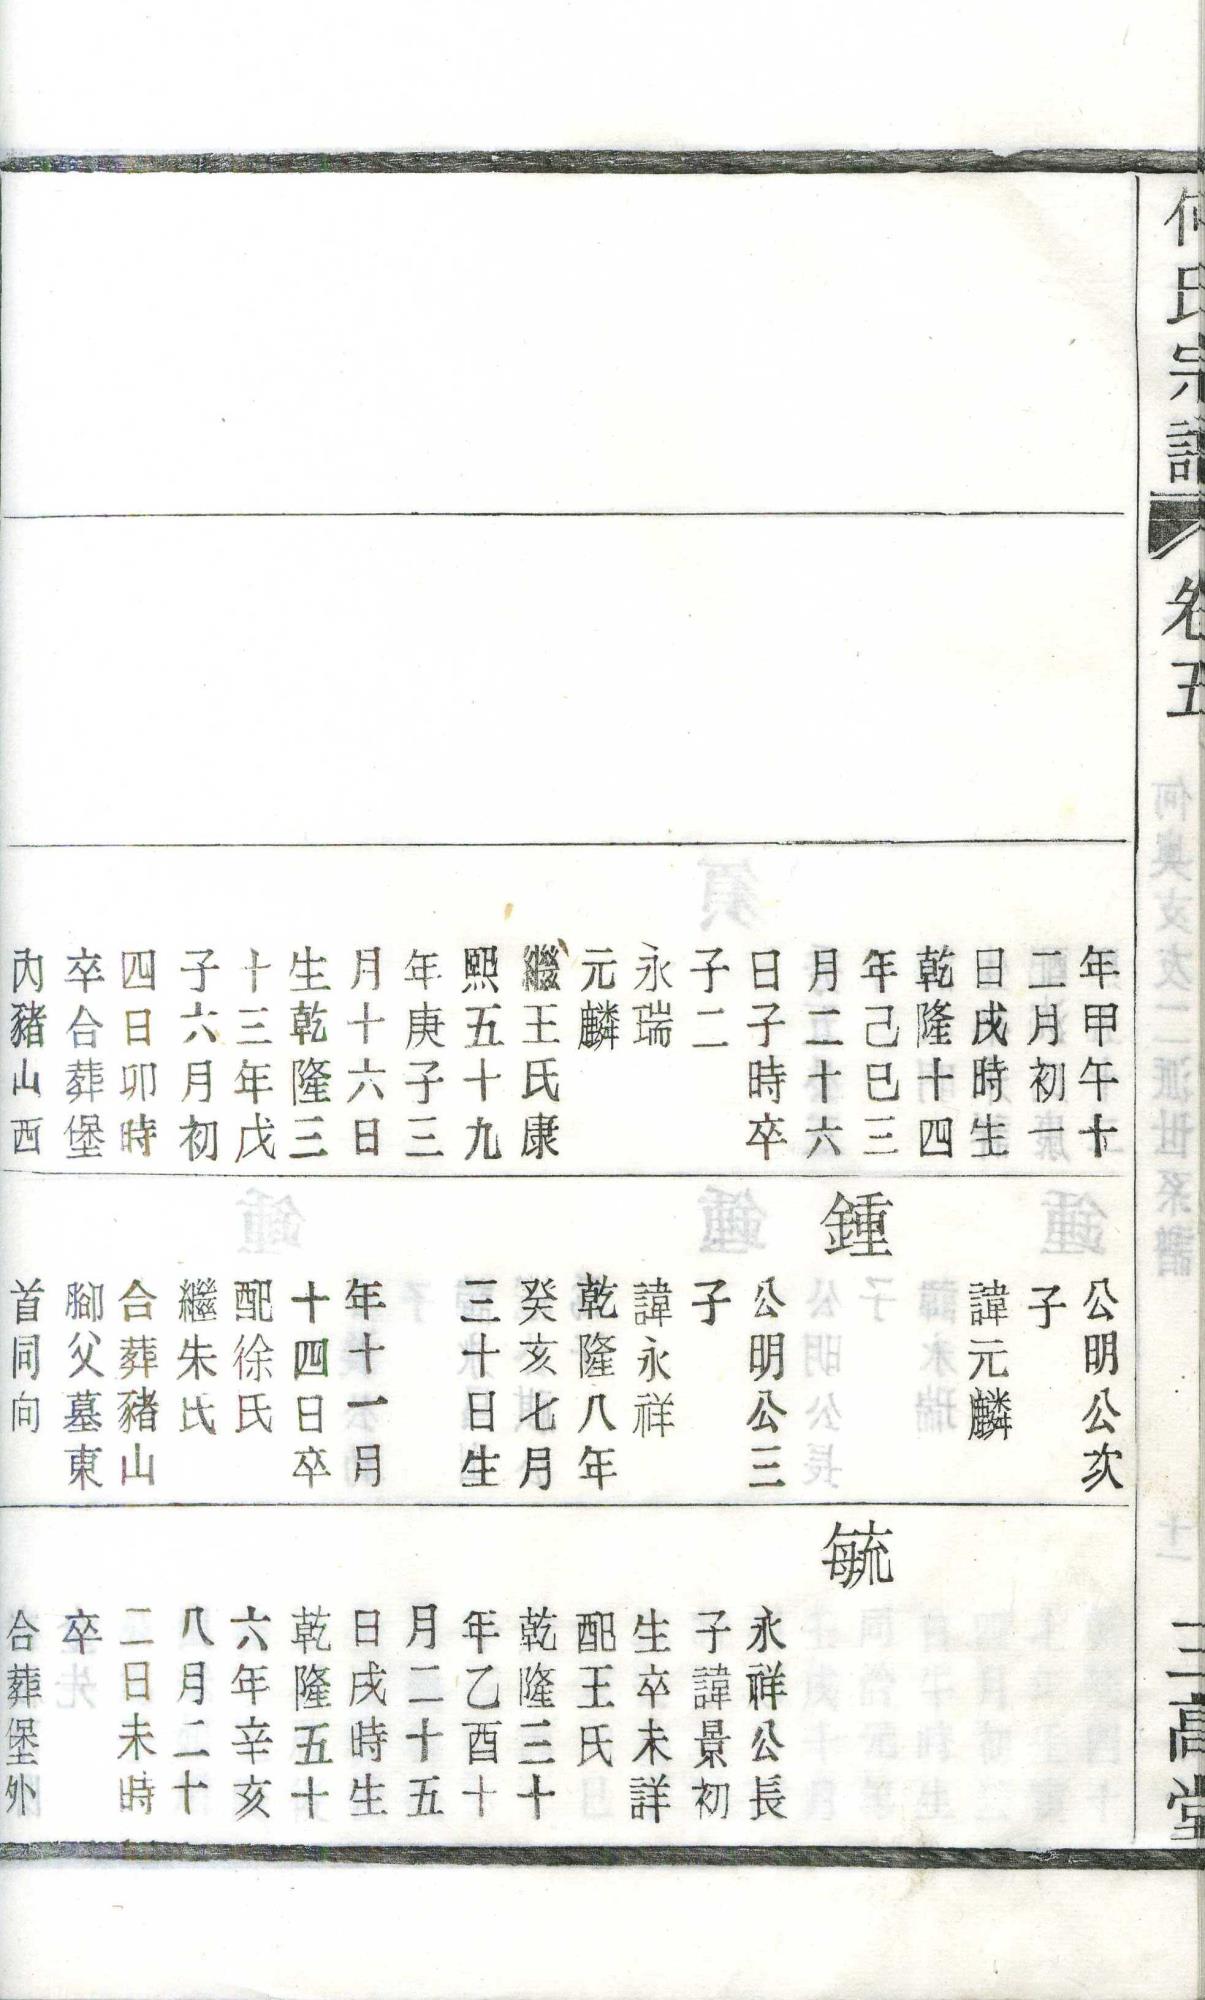 何氏宗譜
卷五
三高堂
年甲午十
二月初一
日戌時生
乾隆十四
年己巳三
月二十六
日子時卒
子二
永瑞
元麟
繼王氏康
熙五十九
年庚子三
月十六日
生乾隆三
十三年戊
子六月初
四日卯時
卒合葬堡
內豬山西
公明公次
子
諱元麟
鍾
公明公三
子
諱永祥
乾隆八年
癸亥七月
三十日生
年十一月
十四日卒
配徐氏
繼朱氏
合葬豬山
腳父墓東
首同向
毓
永祥公長
子諱景初
生卒未詳
配王氏
乾隆三十
年乙酉十
月二十五
日戌時生
乾隆五十
六年辛亥
八月二十
二日未時
卒
合葬堡外